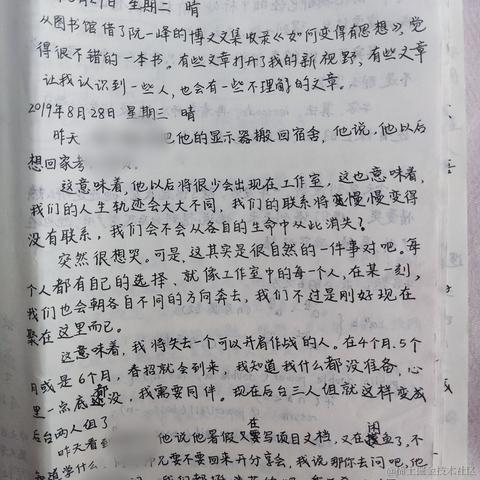 月27日 星期二 晴
从图书馆借了阮一峰的博文文集收录《如何变得有思想》,觉
得很不错的一本书。有些文章打开了我的新视野,有些文章
让我认识到一些人,也会有一些不理解的文章。
2019年8月28日 星期三 晴
昨天 把他的显示器搬回宿舍,他说,他以后
想回家考
这意味着,他以后将很少会出现在工作室,这也意味着,
我们的人生轨迹会大大不同,我们的联系将慢慢慢变得
没有联系,我们会不会从各自的生命中从此消失?
突然很想哭。可是,这其实是很自然的一件事对吧。每
个人都有自己的选择、就像工作室中的每个人,在某一刻,
我们也会朝各自不同的方向奔去,我们不过是刚好现在
聚在这里而已。
这意味着,我将失去一个可以并肩作战的人。在4个月.5个
月或是6个月,春招就会到来,我知道我什么都没准备,心
里一点底都没,我需要同伴。现在后台三人组就这样变成
后台两人组了
昨天看到 他说他暑假又在写项目文档,又在困
了,不
知道学什么, 要不要回来开分享会,我说那你去问吧,他
@稀土掘金技术社区